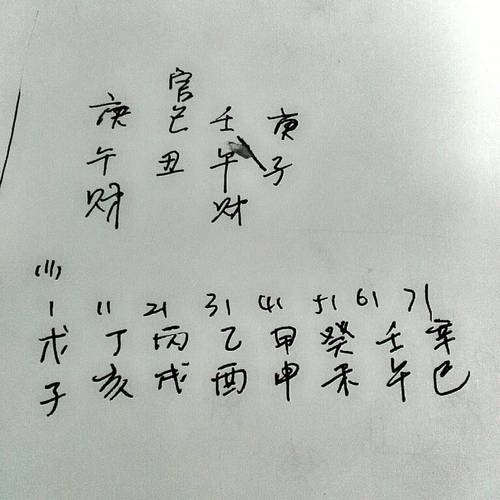 官
庚 己 壬 庚
午 丑 午 子
财 财
(11)
1 11 21 31 41 51 61 71
戊 丁 丙 乙 甲 癸 壬 辛
子 亥 戌 酉 申 未 午 巳